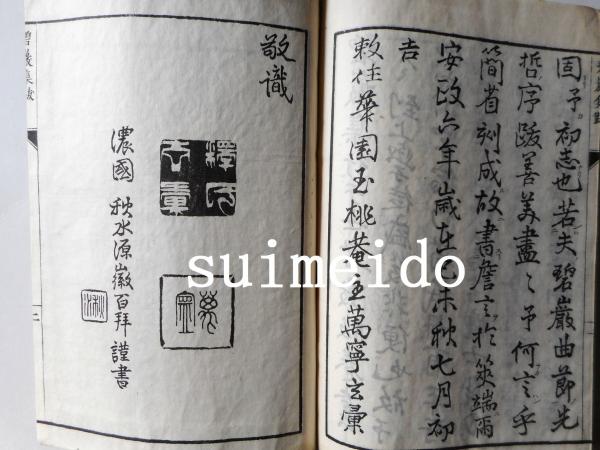 固予初志也若夫碧巖曲節先
哲序跋善美盡ヽ予何言乎
簡省刻成故書詹言於筴端爾
安政六年歲在己未秋七月初
吉
敕住華園玉桃菴主萬寧玄彙
敬識
濃國 秋水源徽百拜謹書
suimeido